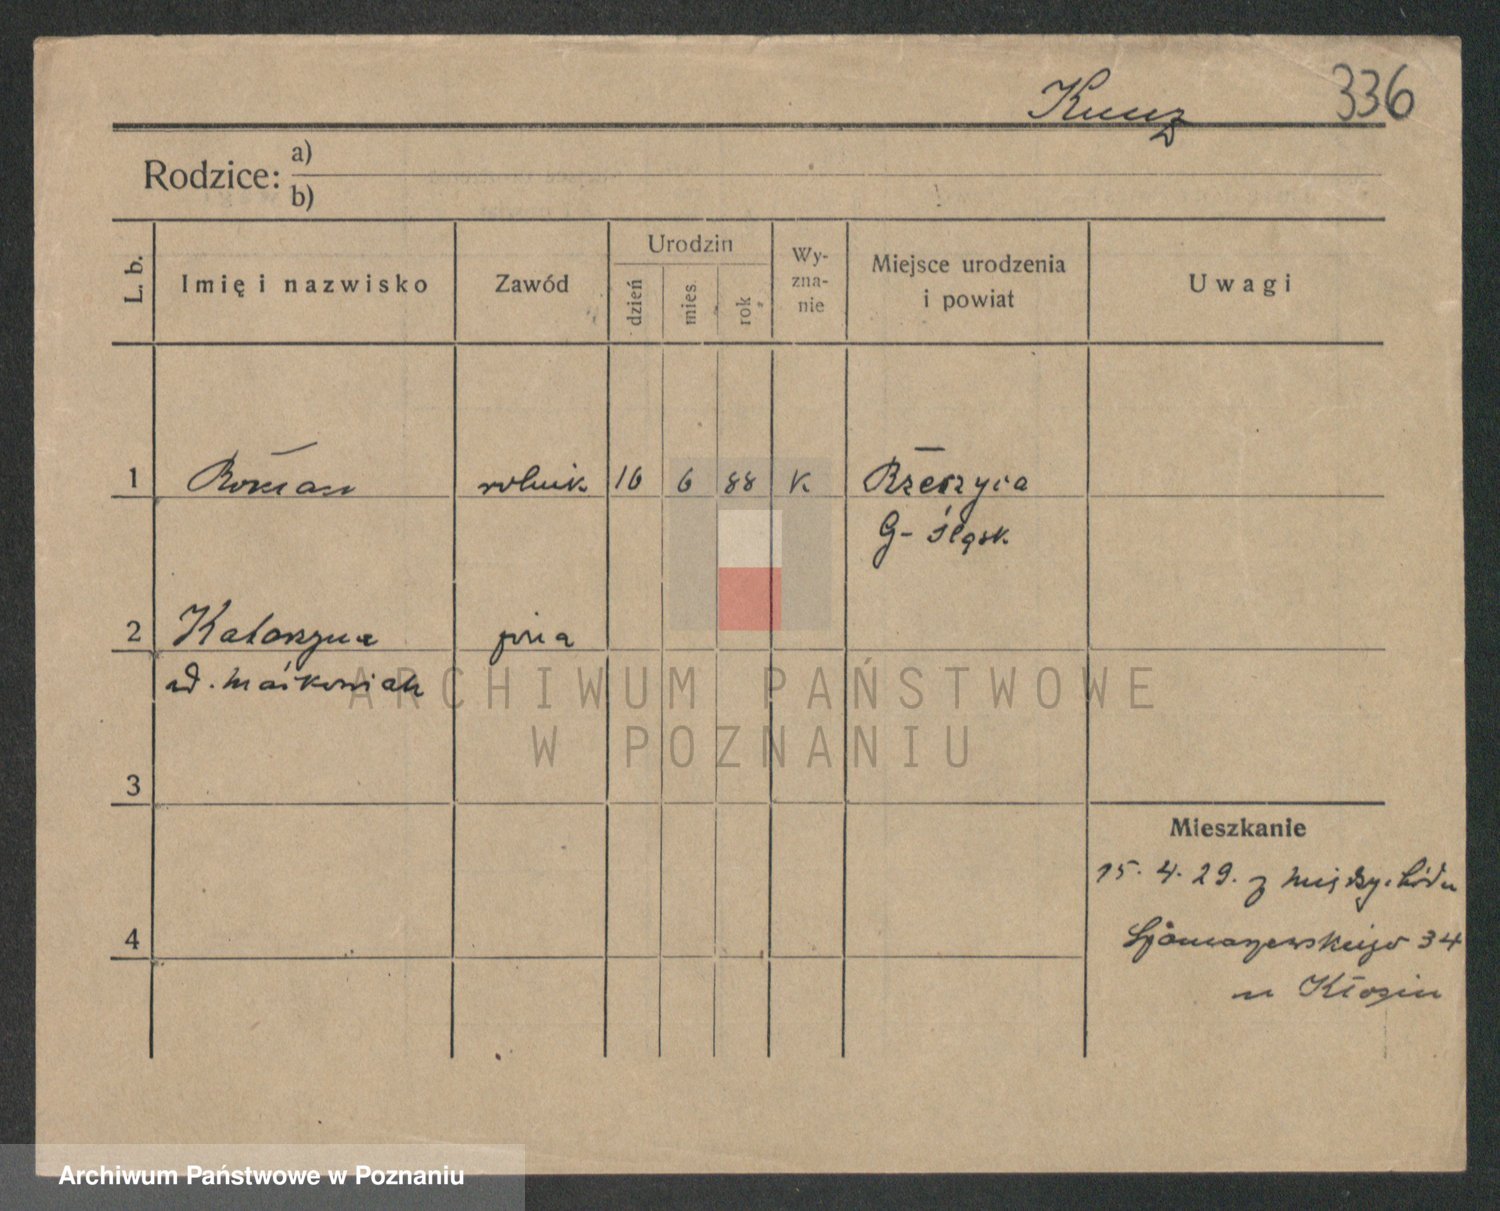 Kunz 336
Rodzice: a)
b)
L. b. Imię i nazwisko Zawód Urodzin dzień mies. rok Wy-
zna-
nie Miejsce urodzenia
i powiat Uwagi
1 Roman rolnik 16 6 88 K Rzeczyca
G- Śląsk.
2 Katarzyna żona
ARCHIWUM PAŃSTWOWE
W POZNANIU
3
Mieszkanie
15. 4. 29. z Międzychodu
4
34
u
Archiwum Państwowe w Poznaniu